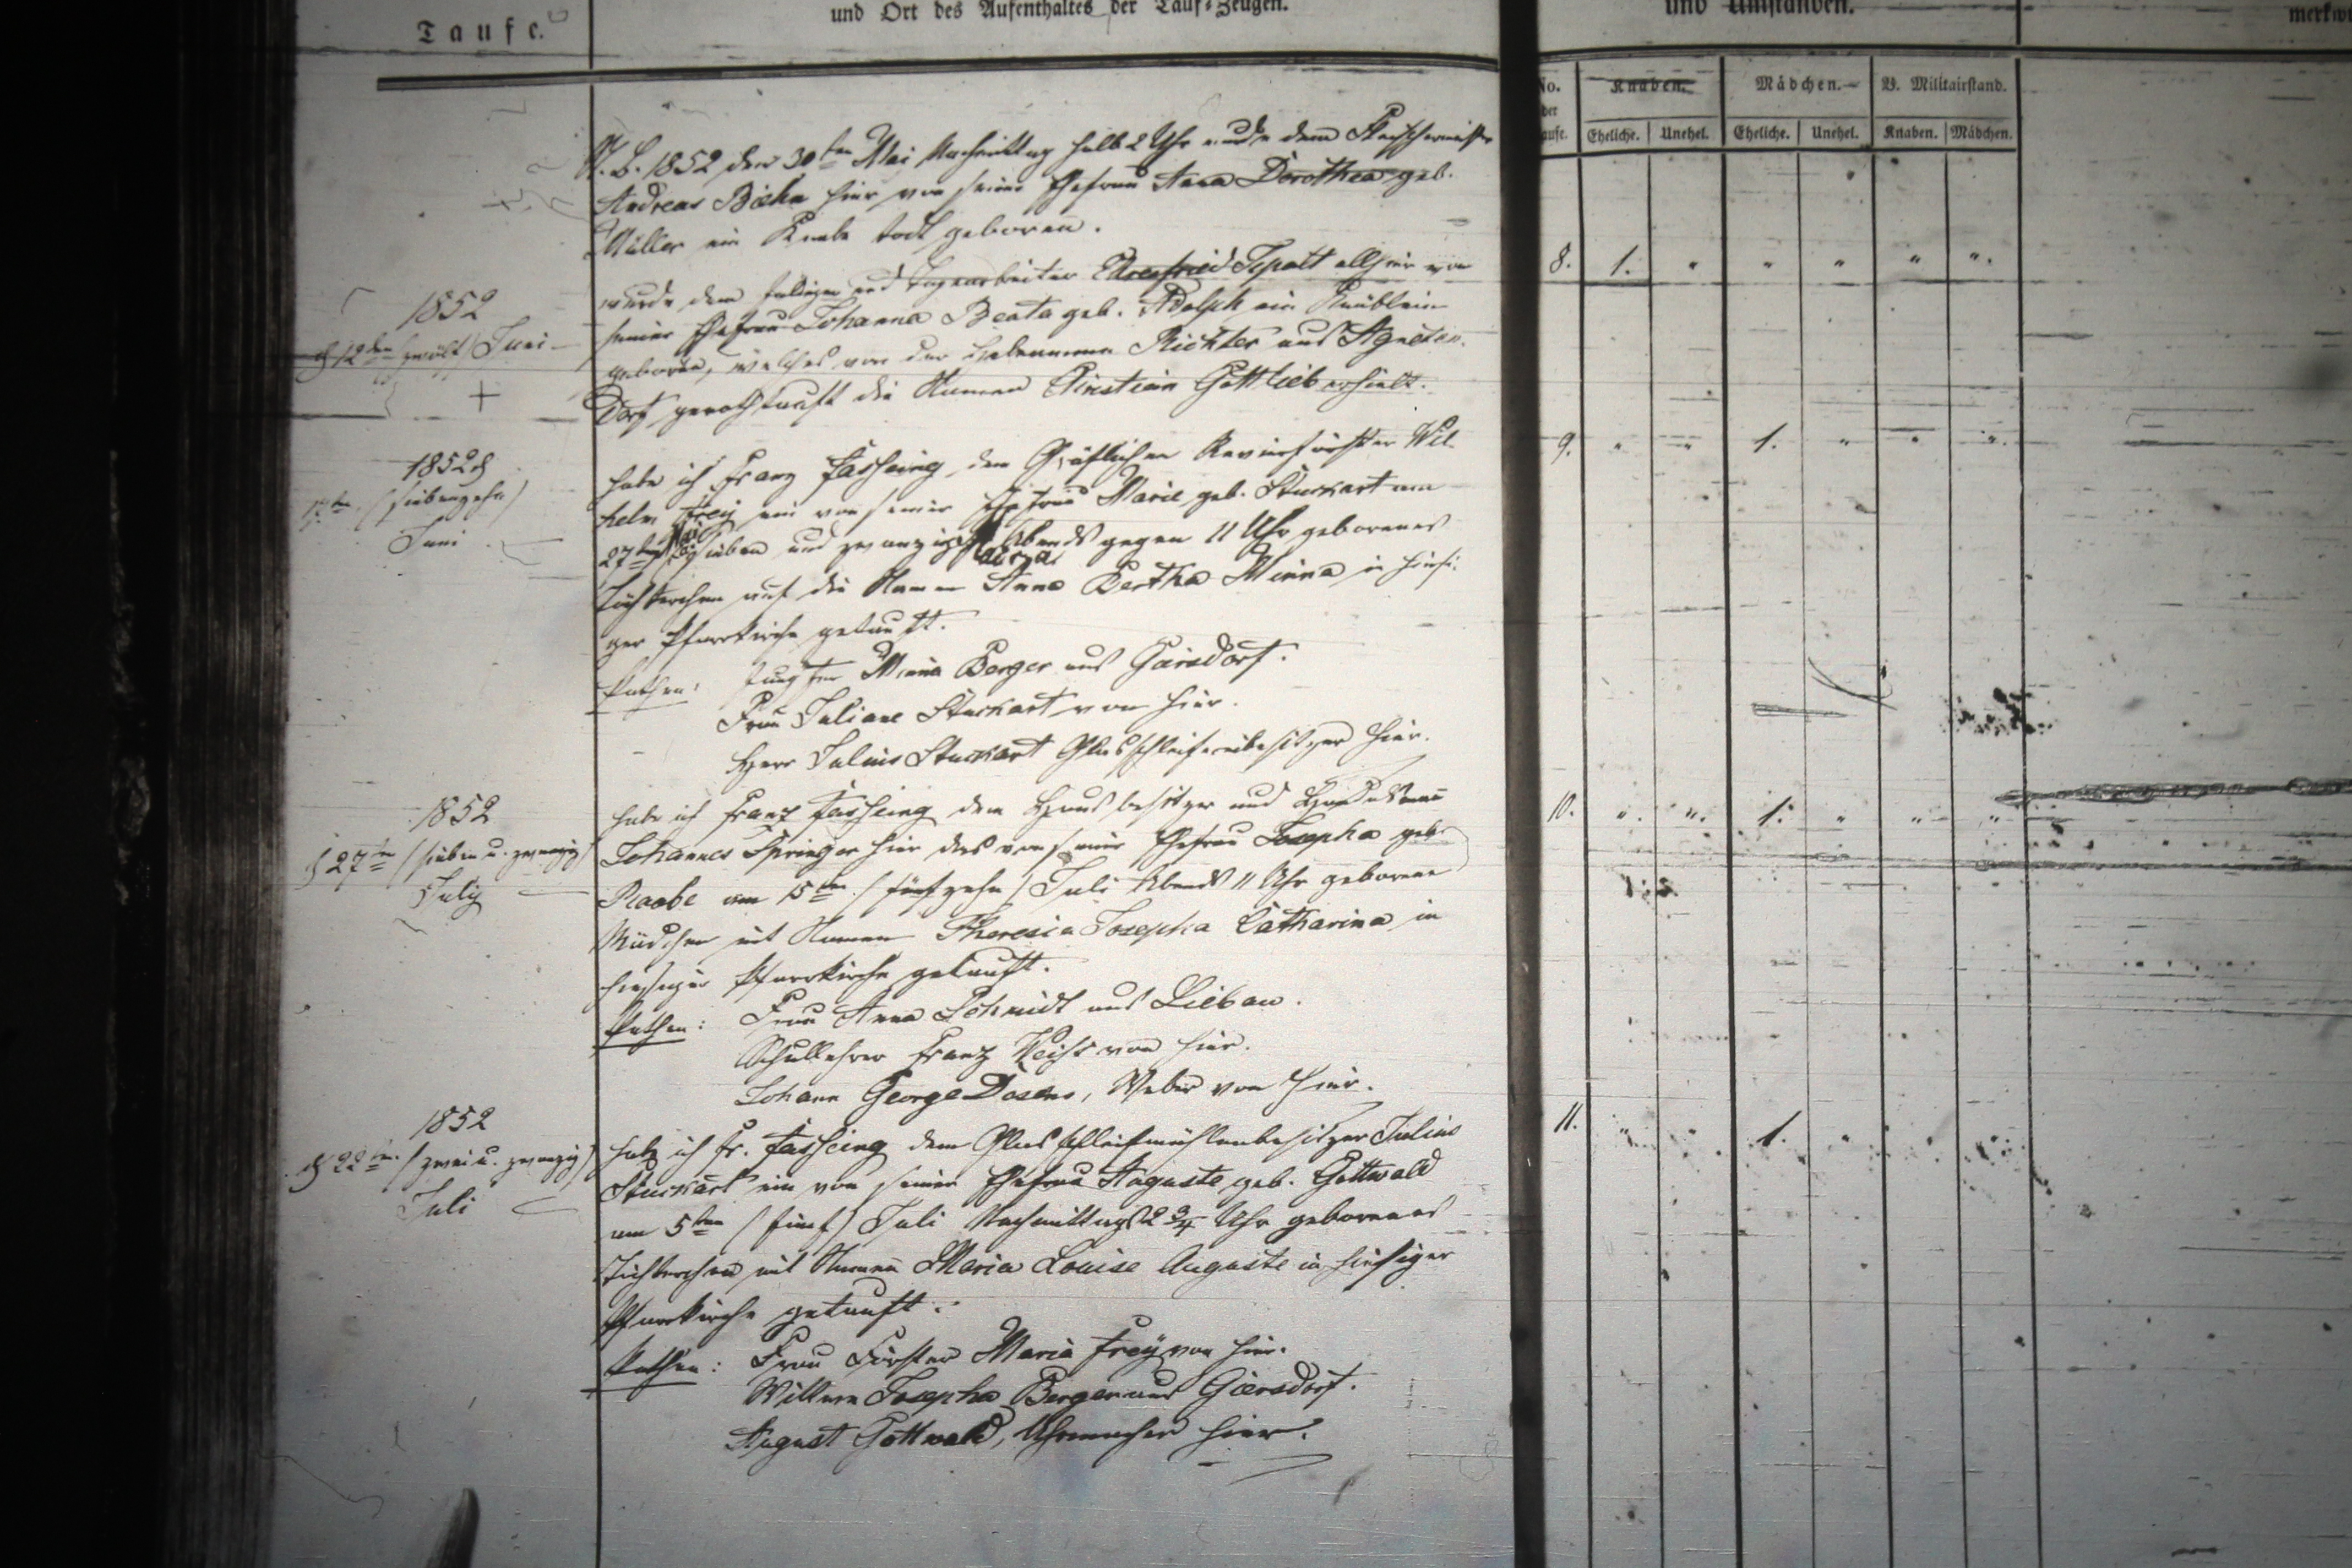 Taufe.
und Ort des Aufenthaltes der Tauf-Zeugen.
und Umständen.
No.
der
Knaben.
Mädchen.
B. Militairstand.
Eheliche. Unehel. Eheliche. Unehel. Knaben. Mädchen.
N. B. 1852 den 30ten Mai Nachmittag halb 2 Uhr wurde dem
Andreas hier von seiner Ehefrau Anna Dorothea geb.
Müller ein Knabe todt geboren.
1852
d 12ten /zwölf/ Juni
wurde dem und Tagearbeiter Ehrenfried allhier von
seiner Ehefrau Johanna Beata geb. Adolph ein Knäblein
geboren, welches von der Hebamme Richter aus Agneten-
dorf genothtauft die Namen Christian Gottlieb erhielt.
8. 1. " " " " "
1852 d
17ten (siebenzehn)
Juni
habe ich Franz dem Gräflichen Revierförster Wil-
helm Frey ein von seiner Ehefrau Marie geb. Stuckart am
27ten Mai /sieben und zwanzigsten/ Abends gegen 11 Uhr geborenes
Töchterchen auf die Namen Anna Bertha Minna in hiesi-
ger Pfarrkirche getauft.
Pathen: Jungfer Minna Berger aus Giersdorf.
Frau Juliane Stuckart von hier.
Herr Julius Stuckart Glasschleifereibesitzer hier.
9. " " 1. " " "
1852
d 27ten /sieben u. zwanzig/
July
habe ich Franz dem Hausbesitzer und
Johannes Springer hier das von seiner Ehefrau Josepha geb.
Raabe am 15ten /fünfzehn/ Juli Abends 11 Uhr geborene
Mädchen mit Namen Theresia Josepha Catharina in
hiesiger Pfarrkirche getauft.
Pathen: Frau Anna Schmidt aus Liebau.
Schullehrer Franz von hier.
Johann George Weber von hier.
10. " " 1. " " "
1852
d 22ten /zwei u. zwanzig/
Juli
habe ich Fr. dem Glasschleifmühlenbesitzer Julius
Stuckart ein von seiner Ehefrau Auguste geb. Gottwald
am 5ten /fünf/ Juli Nachmittags 2 3/4 Uhr geborenes
Töchterchen mit Namen Maria Louise Auguste in hiesiger
Pfarrkirche getauft.
Pathen: Frau Förster Maria Frey von hier.
Wittwe Josepha Berger aus Giersdorf.
August Gottwald, Uhrmacher hier.
11. " " 1. " " "